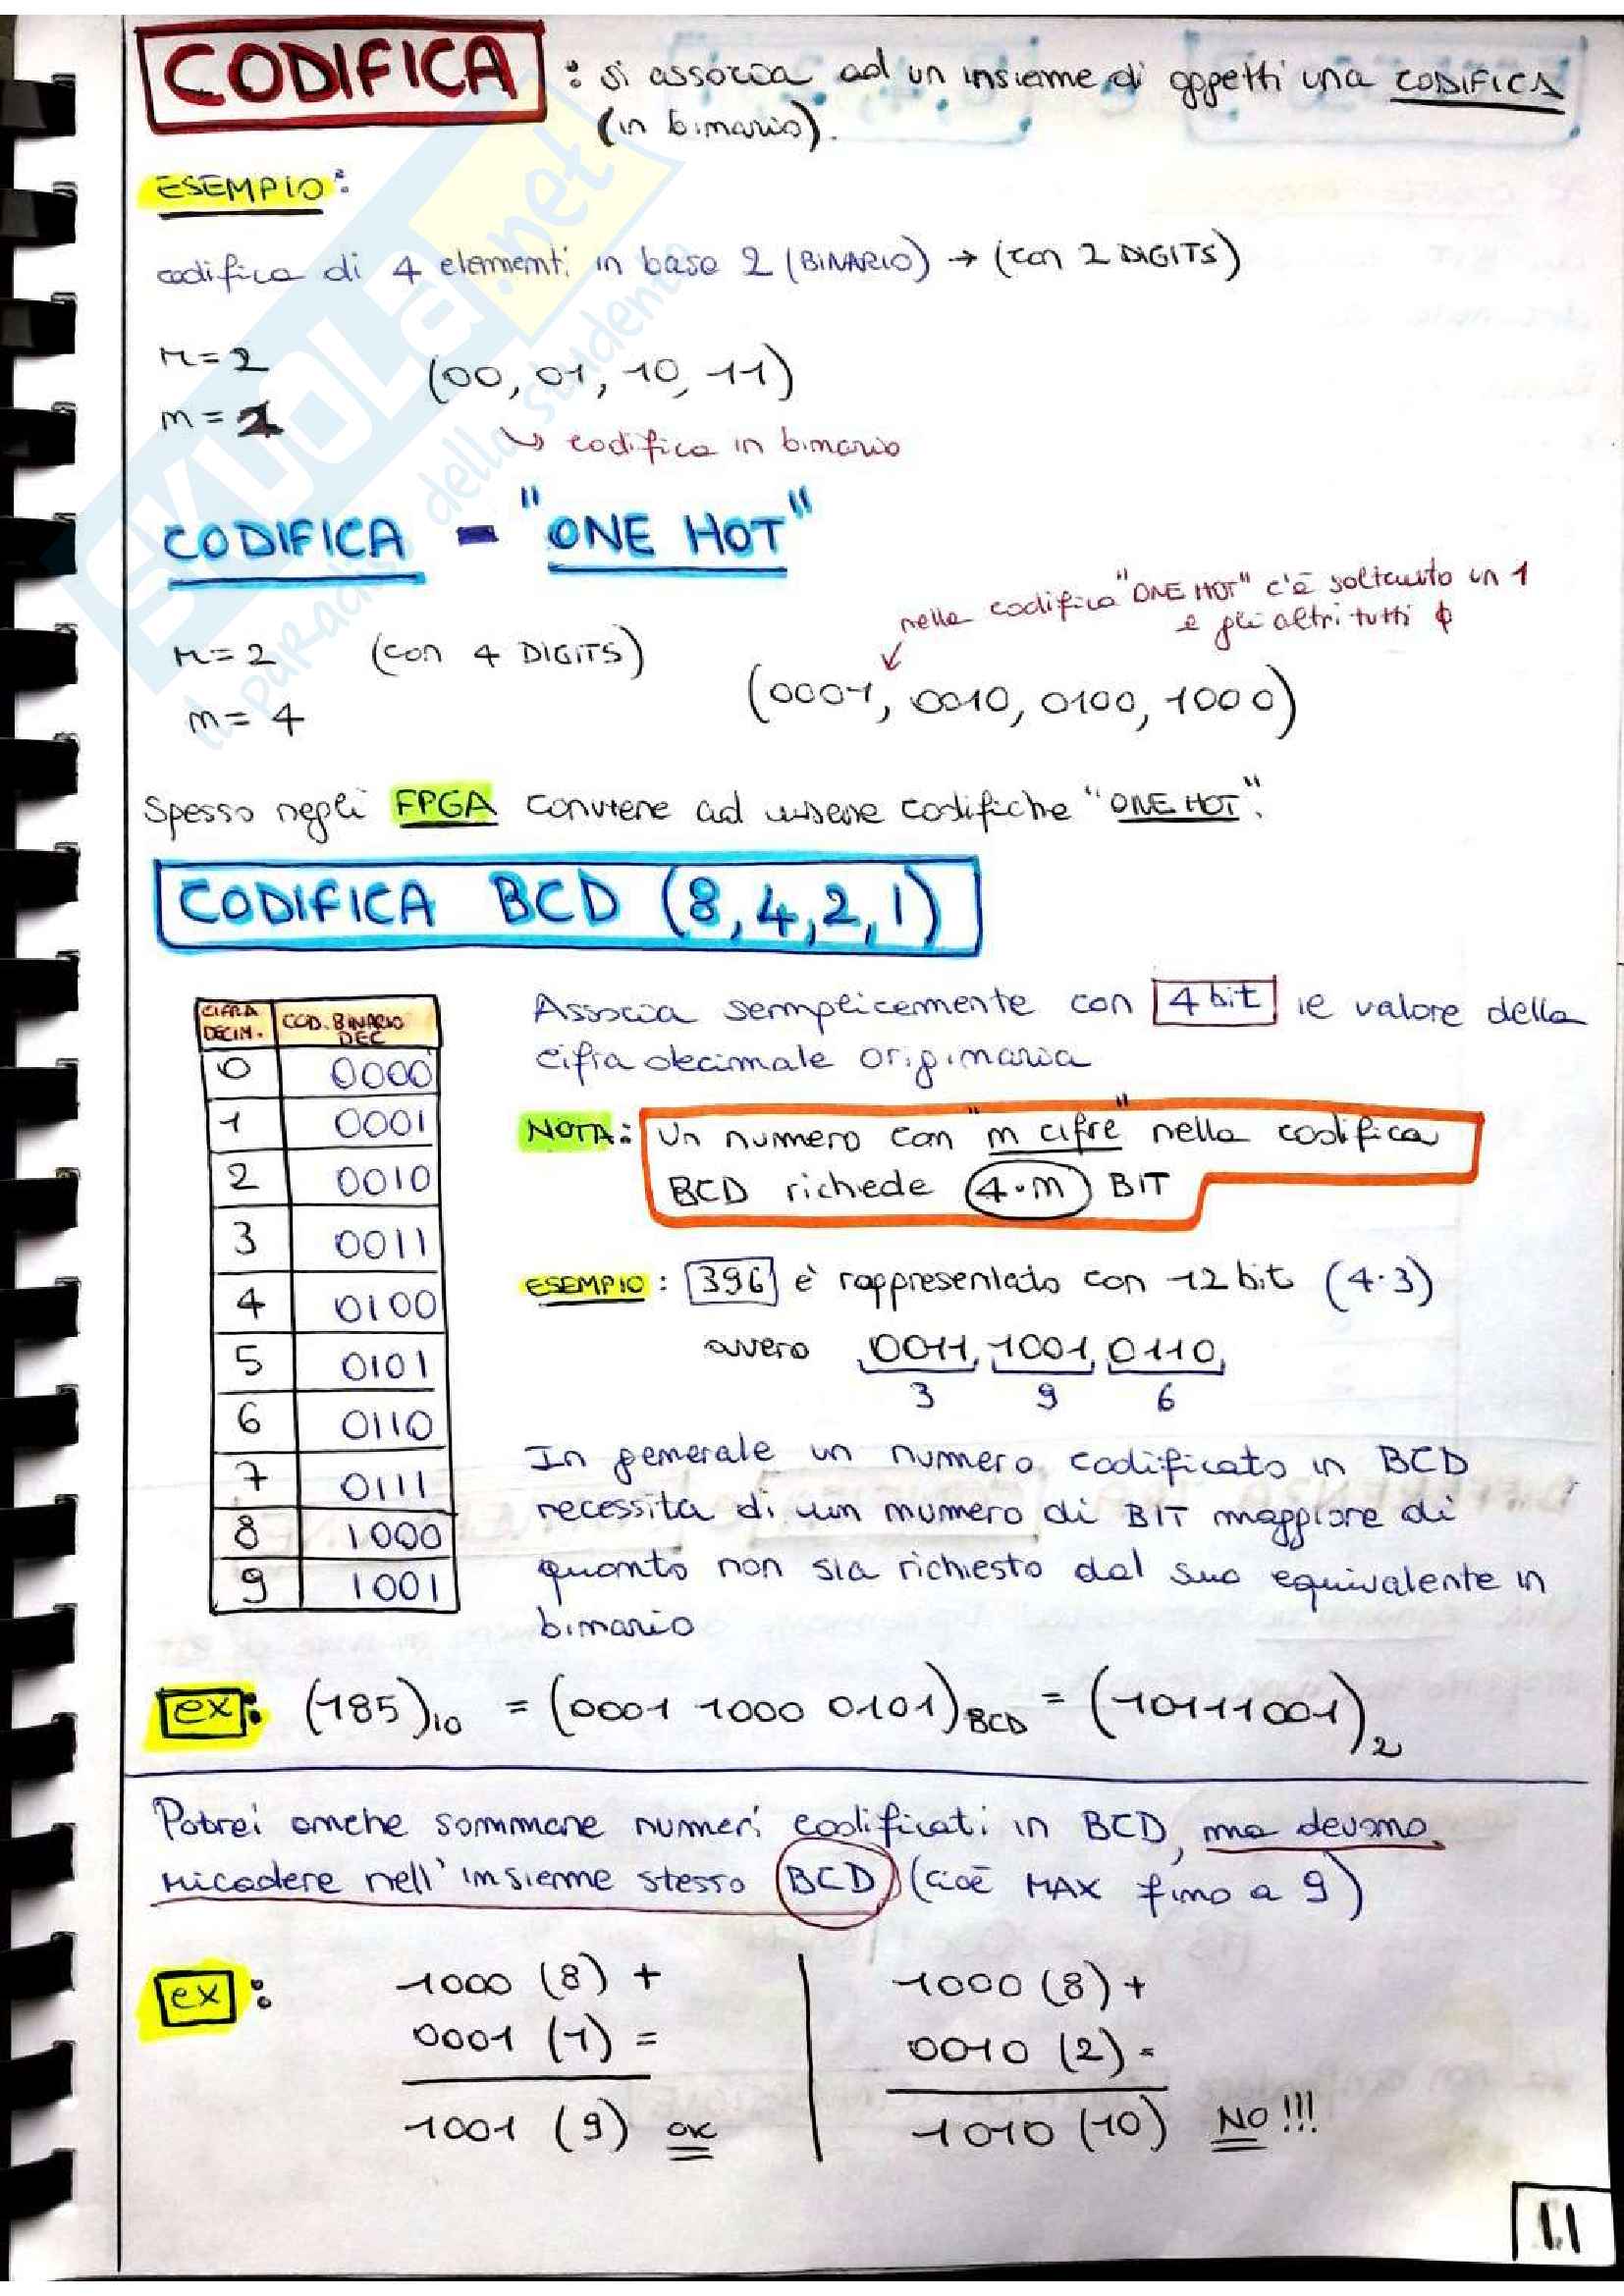 CODIFICA : si associa ad un insieme di oggetti una CODIFICA
(in binario).
ESEMPIO:
codifica di 4 elementi in base 2 (BINARIO) → (con 2 DIGITS)
r=2 (00, 01, 10, 11)
m=2
↳ codifica in binario
CODIFICA - "ONE HOT"
nella codifica "ONE HOT" c'è soltanto un 1
e gli altri tutti 0
r=2 (con 4 DIGITS)
m=4
(0001, 0010, 0100, 1000)
Spesso negli FPGA conviene ad usare codifiche "ONE HOT".
CODIFICA BCD (8,4,2,1)
CIFRA DECIM. COD. BINARIO DEC
0 0000
1 0001
2 0010
3 0011
4 0100
5 0101
6 0110
7 0111
8 1000
9 1001
Associa semplicemente con 4 bit il valore della
cifra decimale originaria
NOTA: Un numero con "m cifre" nella codifica
BCD richede 4·m BIT
ESEMPIO: 396 è rappresentato con 12 bit (4·3)
ovvero 0011 1001 0110
3 9 6
In generale un numero codificato in BCD
necessita di un numero di BIT maggiore di
quanto non sia richiesto dal suo equivalente in
binario
ex: (185)10 = (0001 1000 0101)BCD = (10111001)2
Potrei anche sommare numeri codificati in BCD, ma devono
ricadere nell'insieme stesso BCD (cioè MAX fino a 9)
ex: 1000 (8) +
0001 (1) =
1001 (9) OK
1000 (8) +
0010 (2) =
1010 (10) NO!!!
11
SKUOLA.net
il paradiso dello studente